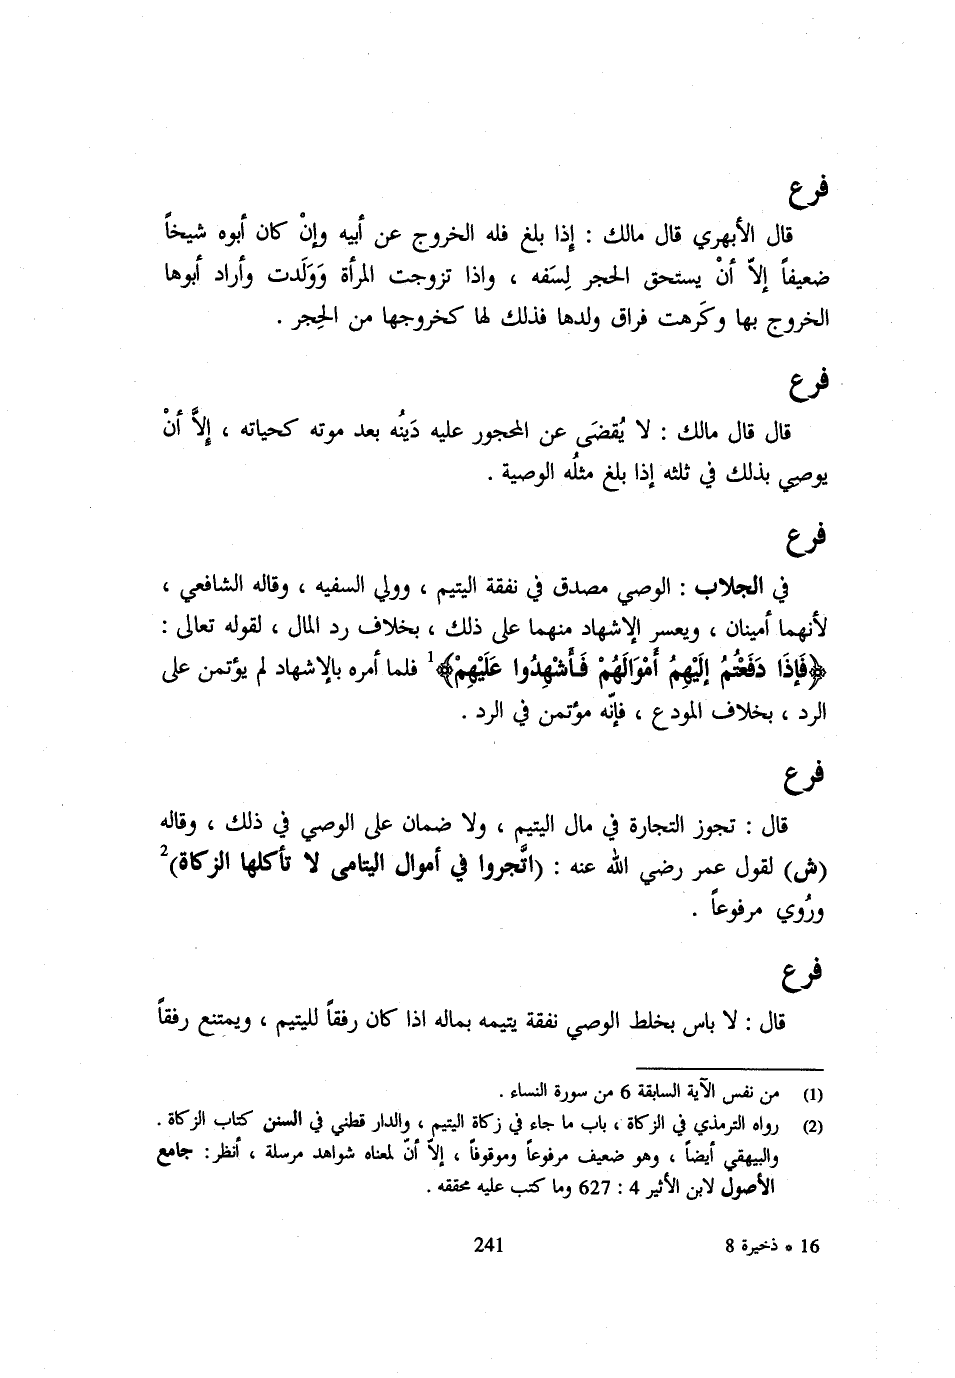 فرع
قال الأبهري قال مالك : إذا بلغ فله الخروج عن أبيه وإنْ كان أبوه شيخاً
ضعيفاً إلاّ أنْ يستحق الحجر لِسَفه ، واذا تزوجت المرأة وَوَلَدت وأراد أبوها
الخروج بها وكَرهت فراق ولدها فذلك لها كخروجها من الحِجر .
فرع
قال قال مالك : لا يُقضَى عن المحجور عليه دَينُه بعد موته كحياته ، إلاَّ أنْ
يوصي بذلك في ثلثه إذا بلغ مثلُه الوصية .
فرع
في الجلاب : الوصي مصدق في نفقة اليتيم ، وولي السفيه ، وقاله الشافعي ،
لأنهما أمينان ، ويعسر الإشهاد منهما على ذلك ، بخلاف رد المال ، لقوله تعالى :
﴿فَإذَا دَفَعْتُمُ إلَيْهِمُ أمْوَالَهُمْ فَـأَشْهِدُوا عَلَيْهِمْ﴾1 فلما أمره بالإشهاد لم يؤتمن على
الرد ، بخلاف المودع ، فإنّه مؤتمن في الرد .
فرع
قال : تجوز التجارة في مال اليتيم ، ولا ضمان على الوصي في ذلك ، وقاله
(ش) لقول عمر رضي الله عنه : (اتَّجروا في أموال اليتامى لا تأكلها الزكاة)2
ورُوي مرفوعاً .
فرع
قال : لا باس بخلط الوصي نفقة يتيمه بماله اذا كان رفقاً لليتيم ، ويمتنع رفقاً
(1) من نفس الآية السابقة 6 من سورة النساء .
(2) رواه الترمذي في الزكاة ، باب ما جاء في زكاة اليتيم ، والدار قطني في السنن كتاب الزكاة .
والبيهقي أيضاً ، وهو ضعيف مرفوعاً وموقوفاً ، إلاّ أنّ لمعناه شواهد مرسلة ، أنظر : جامع
الأصول لابن الأثير 4 : 627 وما كتب عليه محققه .
16 * ذخيرة 8
241